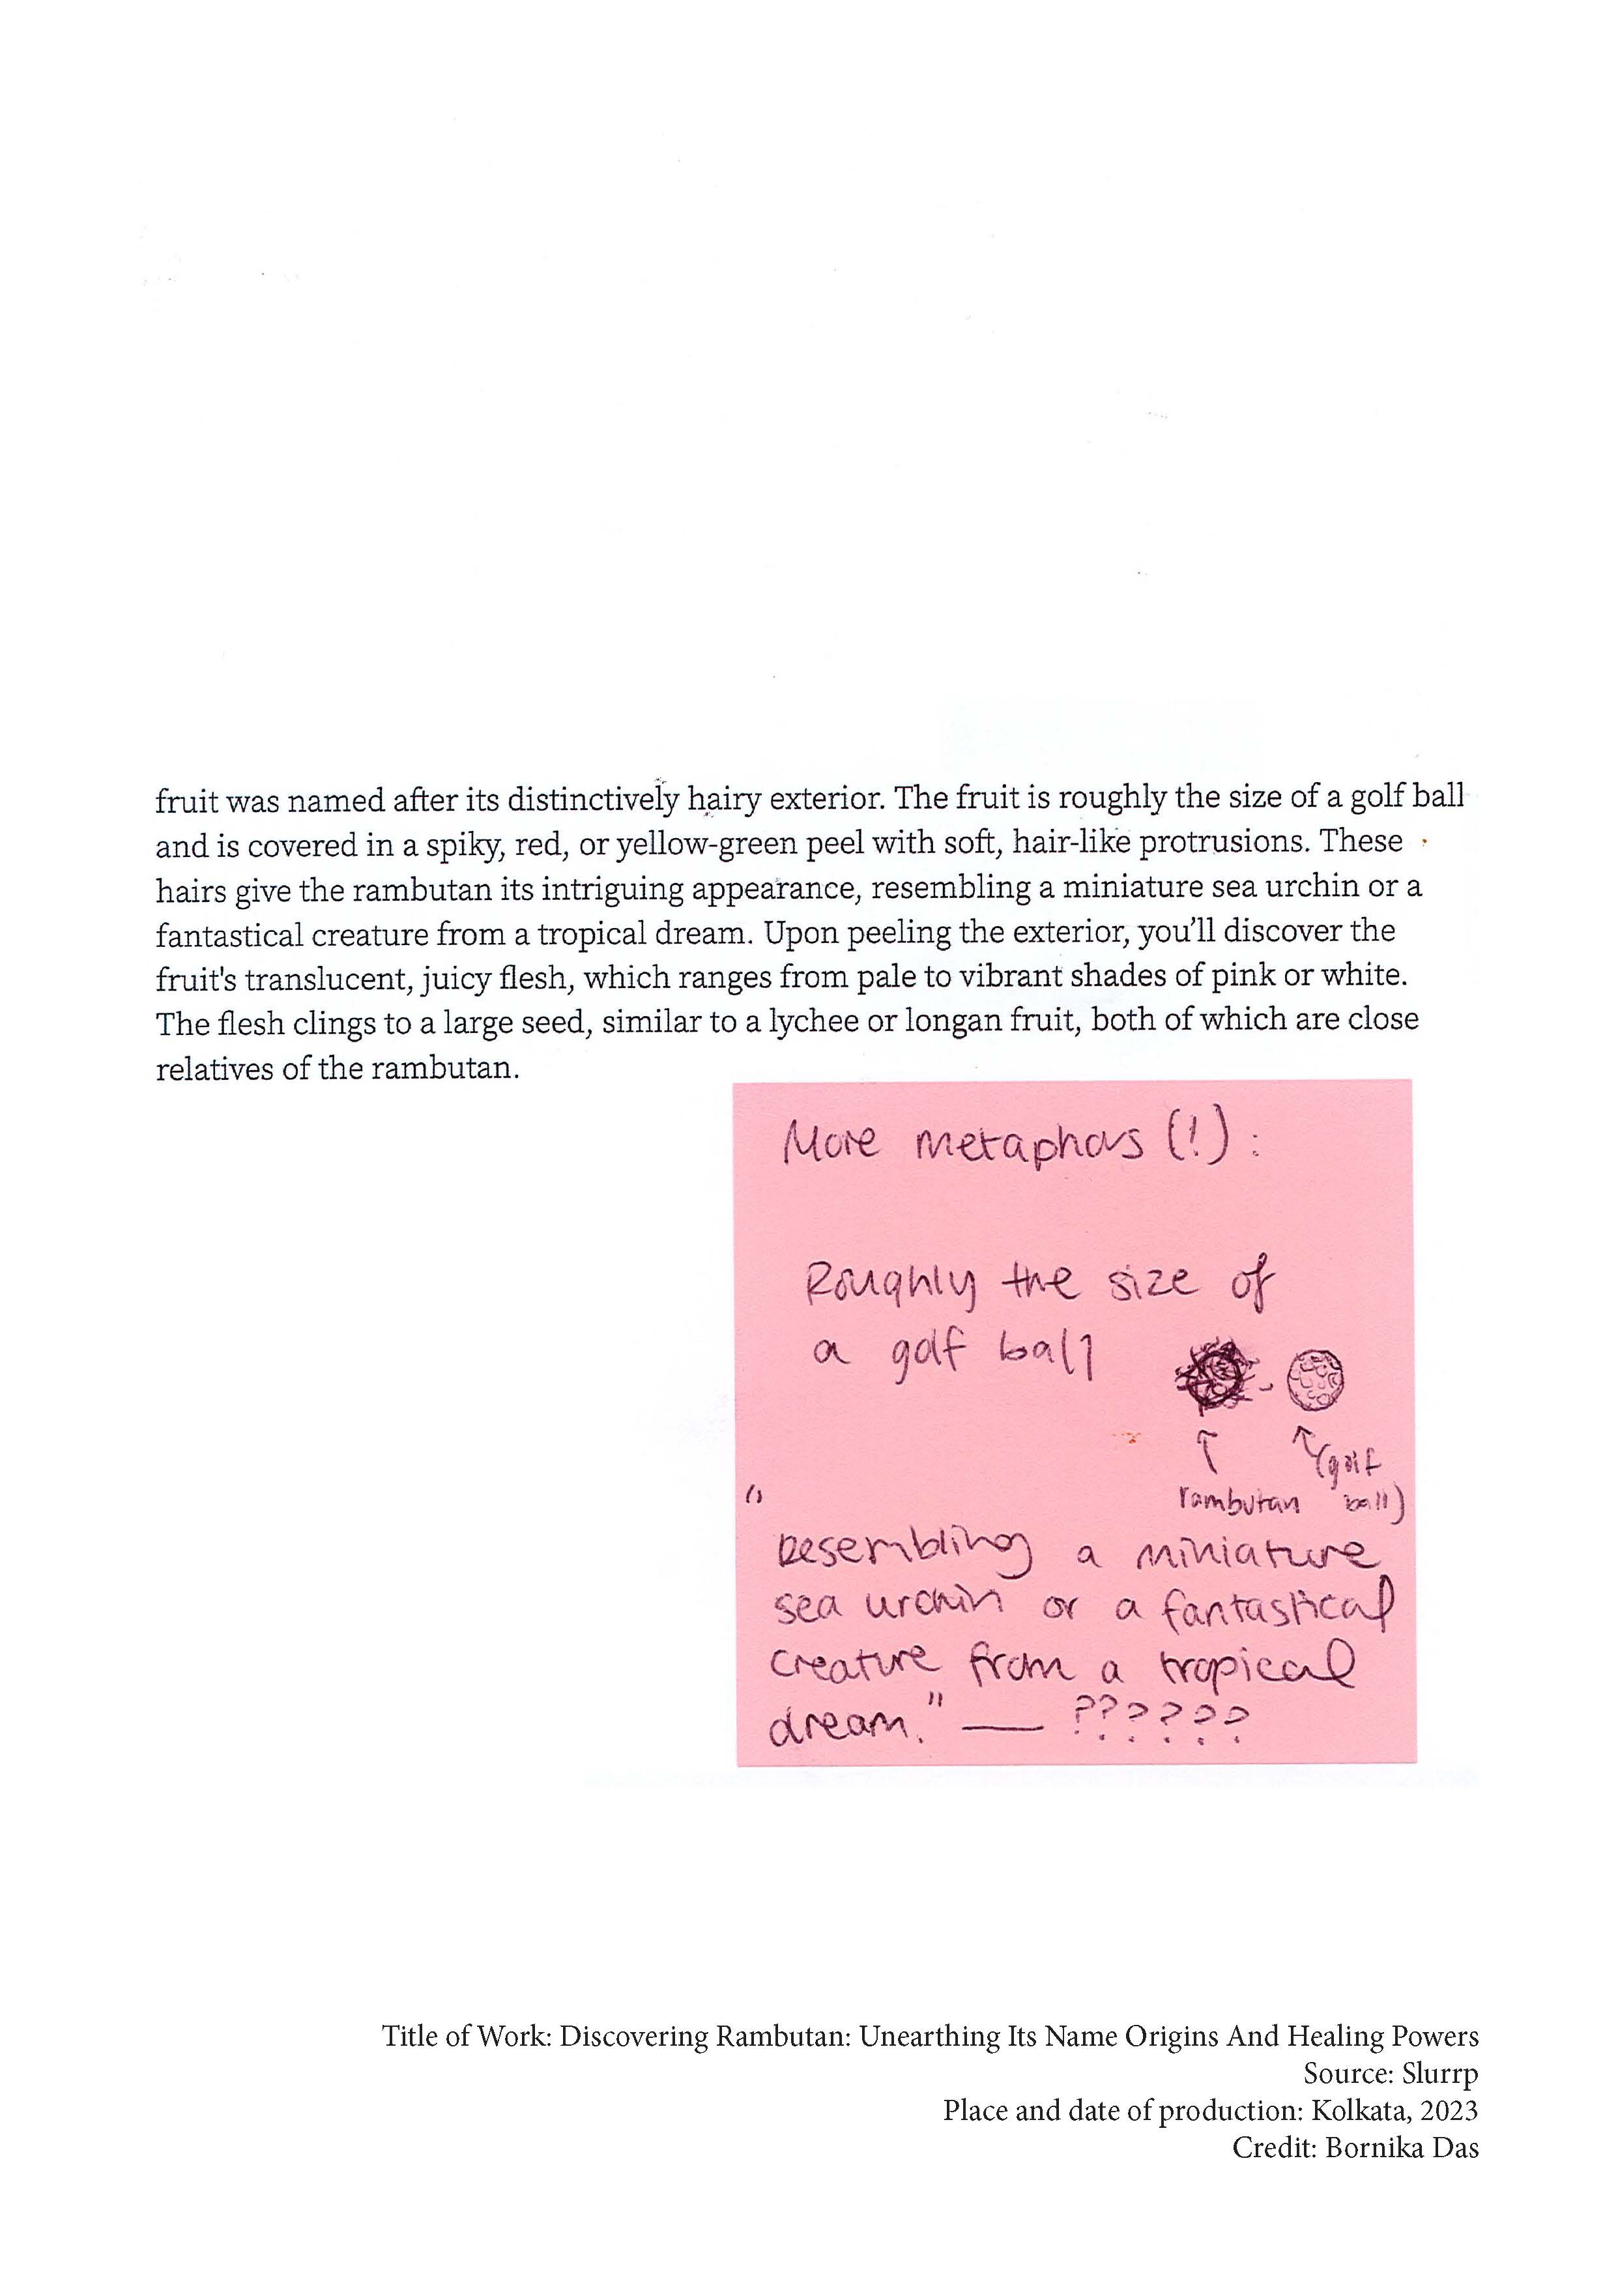 fruit was named after its distinctively hairy exterior. The fruit is roughly the size of a golf ball
and is covered in a spiky, red, or yellow-green peel with soft, hair-like protrusions. These
hairs give the rambutan its intriguing appearance, resembling a miniature sea urchin or a
fantastical creature from a tropical dream. Upon peeling the exterior, you’ll discover the
fruit's translucent, juicy flesh, which ranges from pale to vibrant shades of pink or white.
The flesh clings to a large seed, similar to a lychee or longan fruit, both of which are close
relatives of the rambutan.
More metaphors (!) :
Roughly the size of
a golf ball
rambutan
(golf
ball)
"
Resembling a miniature
sea urchin or a fantastical
creature from a tropical
dream." — ??????
Title of Work: Discovering Rambutan: Unearthing Its Name Origins And Healing Powers
Source: Slurrp
Place and date of production: Kolkata, 2023
Credit: Bornika Das